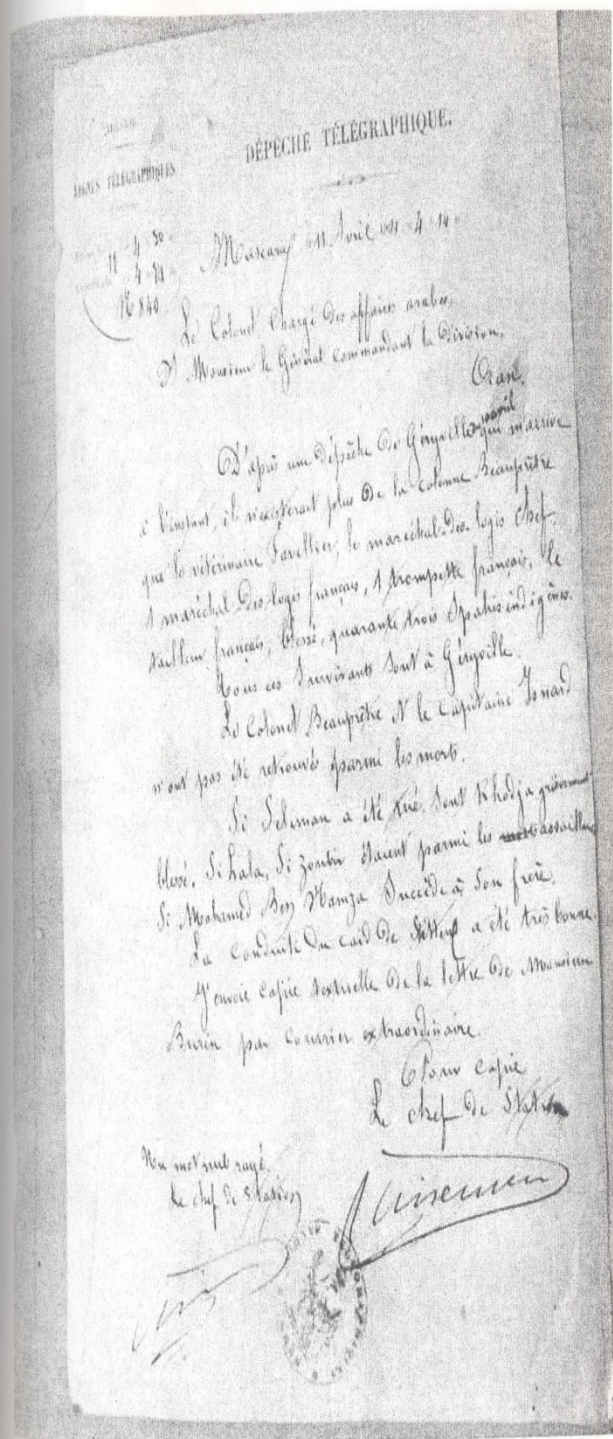 LIGNES TÉLÉGRAPHIQUES
DÉPÊCHE TÉLÉGRAPHIQUE.
11 4 30
4
N 840
Mascara 11 Avril 4 14
Le Colonel Chargé des affaires arabes,
à Monsieur le Général Commandant la Division,
Oran.
D'après une dépêche de Géryville avril qui m'arrive
à l'instant, il n'existerait plus de la colonne Beauprêtre
que le vétérinaire Favellier, le maréchal-des-logis chef,
1 maréchal-des-logis français, 1 trompette français, le
tailleur français, blessé, quarante trois Spahis indigènes.
Tous ces Survivants Sont à Géryville.
Le Colonel Beauprêtre et le Capitaine Isnard
n'ont pas été retrouvés parmi les morts.
Si Seliman a été tué, Khodja grièvement
blessé. Si Lala, Si Zoubir étaient parmi les assaillants
Si Mohamed Ben Hamza Succède à Son frère.
La Conduite du caïd de a été très bonne.
J'envoie Copie textuelle de la lettre de Monsieur
Burin par Courrier extraordinaire.
Pour Copie
Le chef de Station
Un mot nul rayé.
Le chef de Station